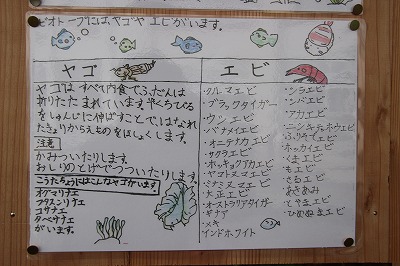 ビオトープにはヤゴや エビがいます。
ヤゴ
ヤゴは すべて肉食で、ふだんは
折りたたまれています。
をしゅんじに伸ばすことで、はなれ
たきょりからえものをほしょくします。
注意
かみついたりします。
おしりのとげでつついたりします。
こうたちょうにはこんなヤゴがいます
オグマサナエ
フタスジサナエ
コサナエ
タベサナエ
がいます。
エビ
・クルマエビ
・ブラックタイガー
・ウシエビ
・バナメイエビ
・オニテナガエビ
・サクラエビ
・ホッキョクアカエビ
・ヤマトヌマエビ
・ミナミヌマエビ
・大正エビ
・オーストラリアタイガー
・ギナア
・メキ
・インドホワイト
・シラエビ
・シバエビ
・アカエビ
・ニシキテッポウエビ
・ふりそでエビ
・ホッカイエビ
・くまエビ
・もエビ
・さるエビ
・あきあみ
・とやまエビ
・ひめぬまエビ